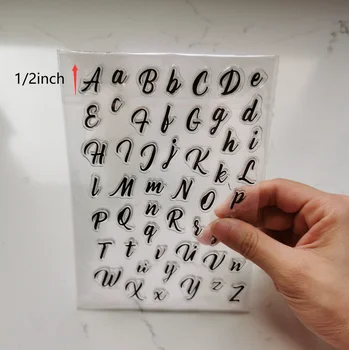 1/2inch
A a B b C D e
E c F f G g d
H I J j K h i
l M m N O k L
P Q n q R r p
T t v U V n
W X u x y Y z Z